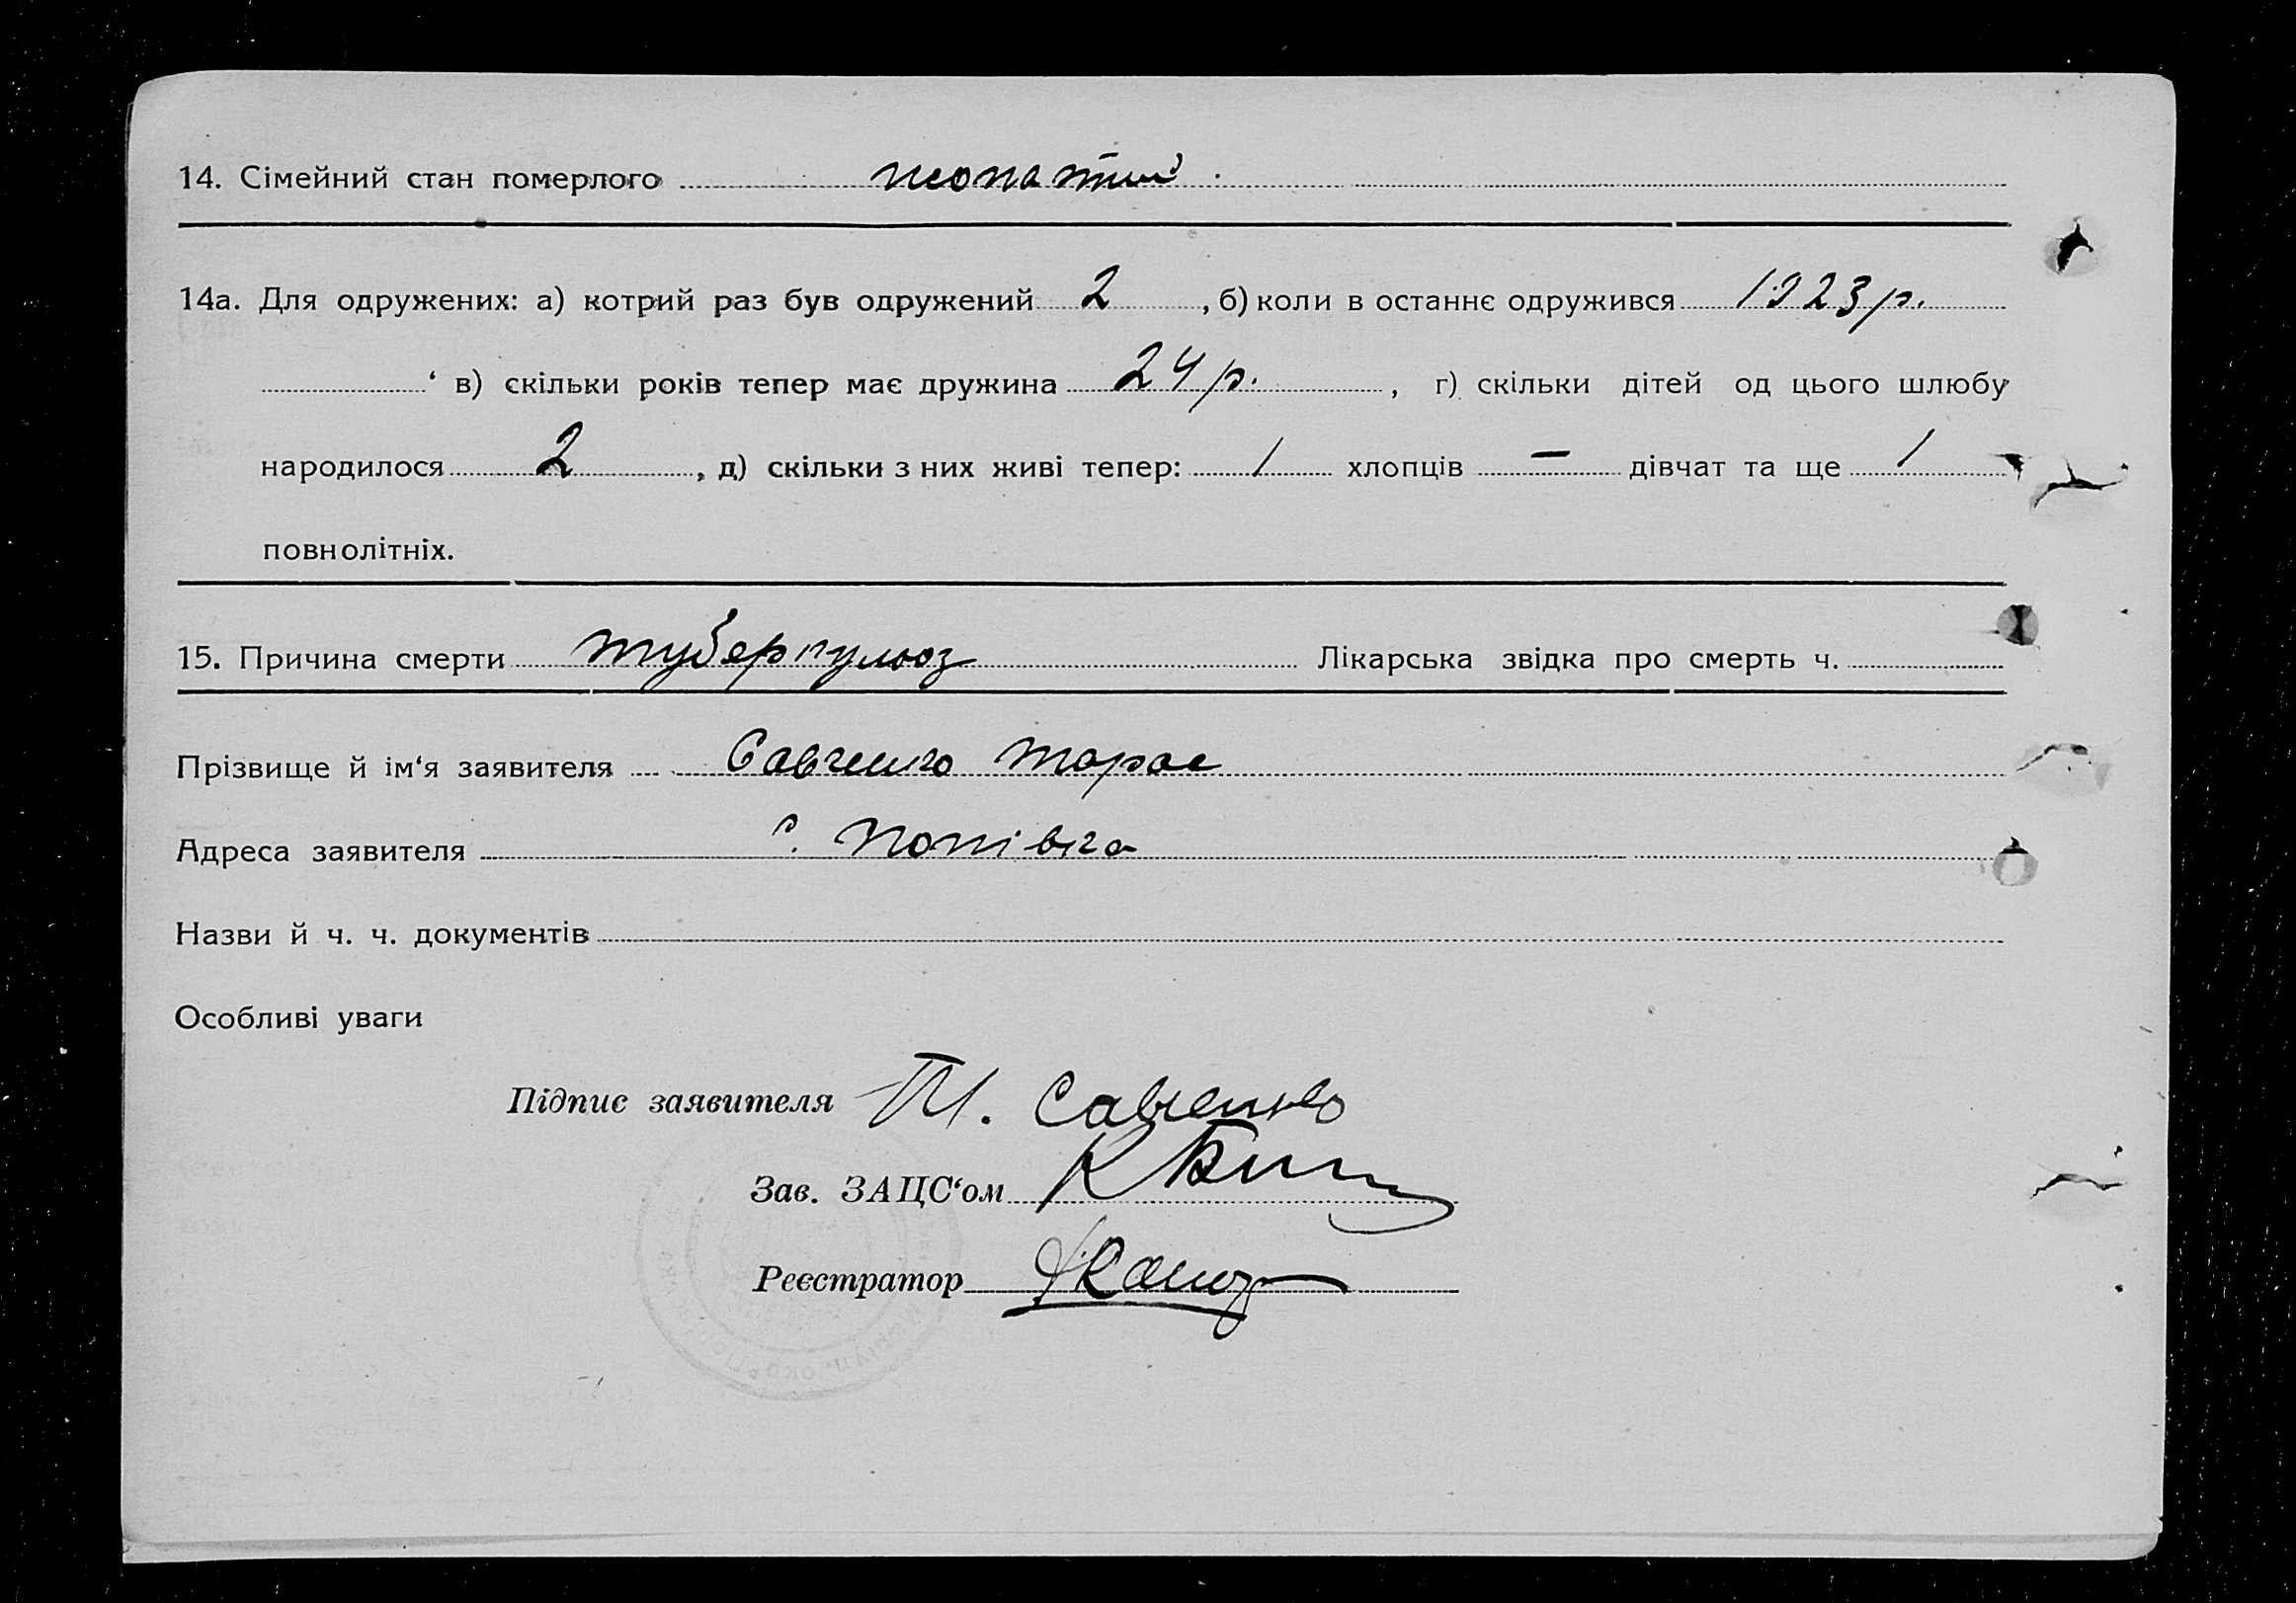 14. Сімейний стан померлого жонатий
14а. Для одружених: а) котрий раз був одружений 2, б) коли в останнє одружився 1923 р.
‘ в) скільки років тепер має дружина 24 р., г) скільки дітей од цього шлюбу
народилося 2, д) скільки з них живі тепер: 1 хлопців — дівчат та ще 1
повнолітніх.
15. Причина смерти туберкульоз Лікарська звідка про смерть ч.
Прізвище й ім‘я заявителя Савченко Тарас
Адреса заявителя с. Попівка
Назви й ч. ч. документів
Особливі уваги
Підпис заявителя Т. Савченко
Зав. ЗАЦС‘ом
Реєстратор